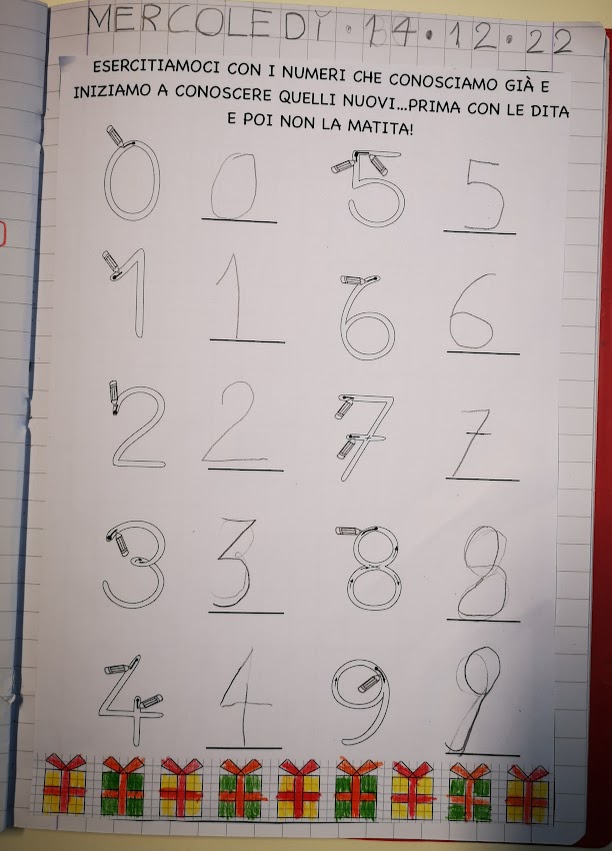 MERCOLEDÌ · 14 · 12 · 22
ESERCITIAMOCI CON I NUMERI CHE CONOSCIAMO GIÀ E
INIZIAMO A CONOSCERE QUELLI NUOVI...PRIMA CON LE DITA
E POI NON LA MATITA!
0 0 5 5
1 1 6 6
2 2 7 7
3 3 8 8
4 4 9 9